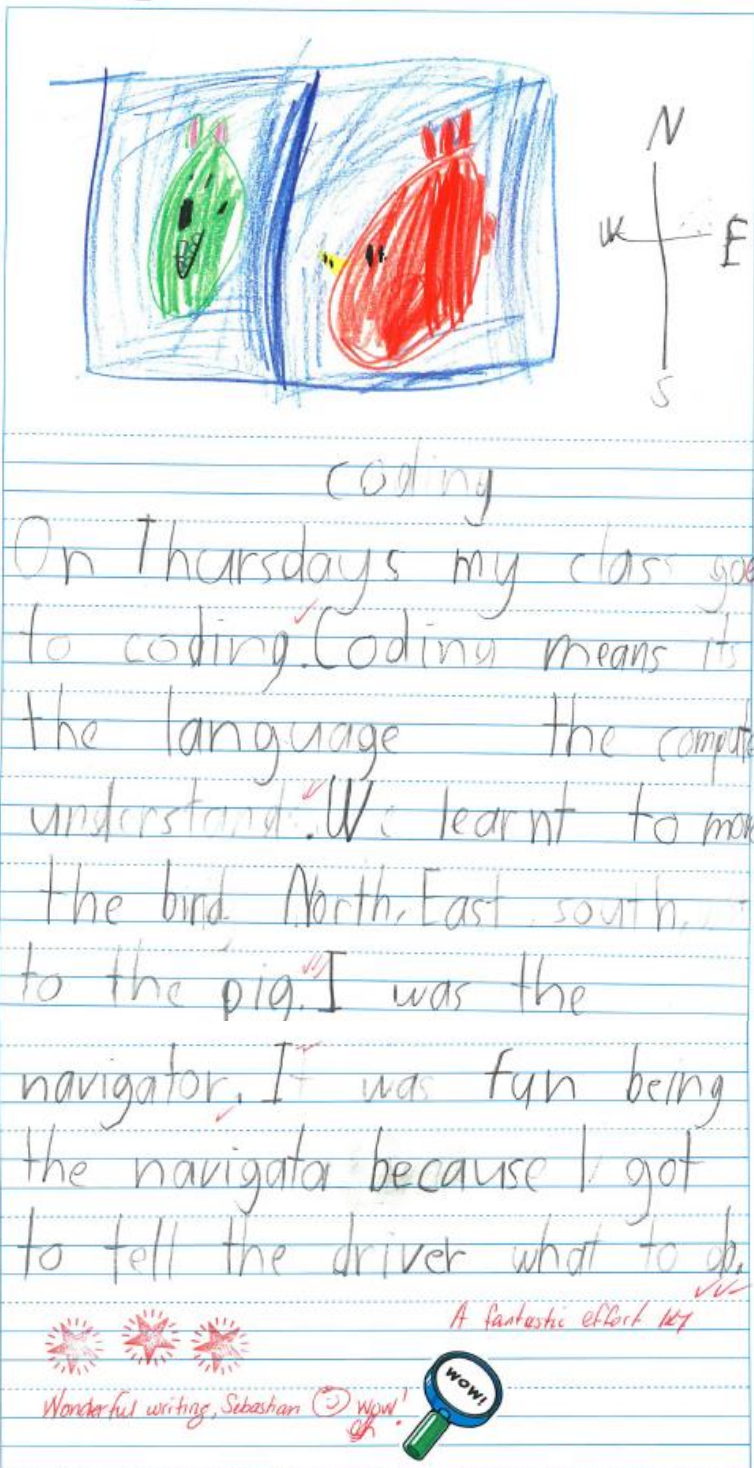 N
W E
S
coding
On Thursdays my class goe
to coding. Coding means its
the language the compute
understand. We learnt to mov
the bird North, East south,
to the pig. I was the
navigator. It was fun being
the navigata because I got
to tell the driver what to do.
A fantastic effort
Wonderful writing, Sebastian wow!
WOW!